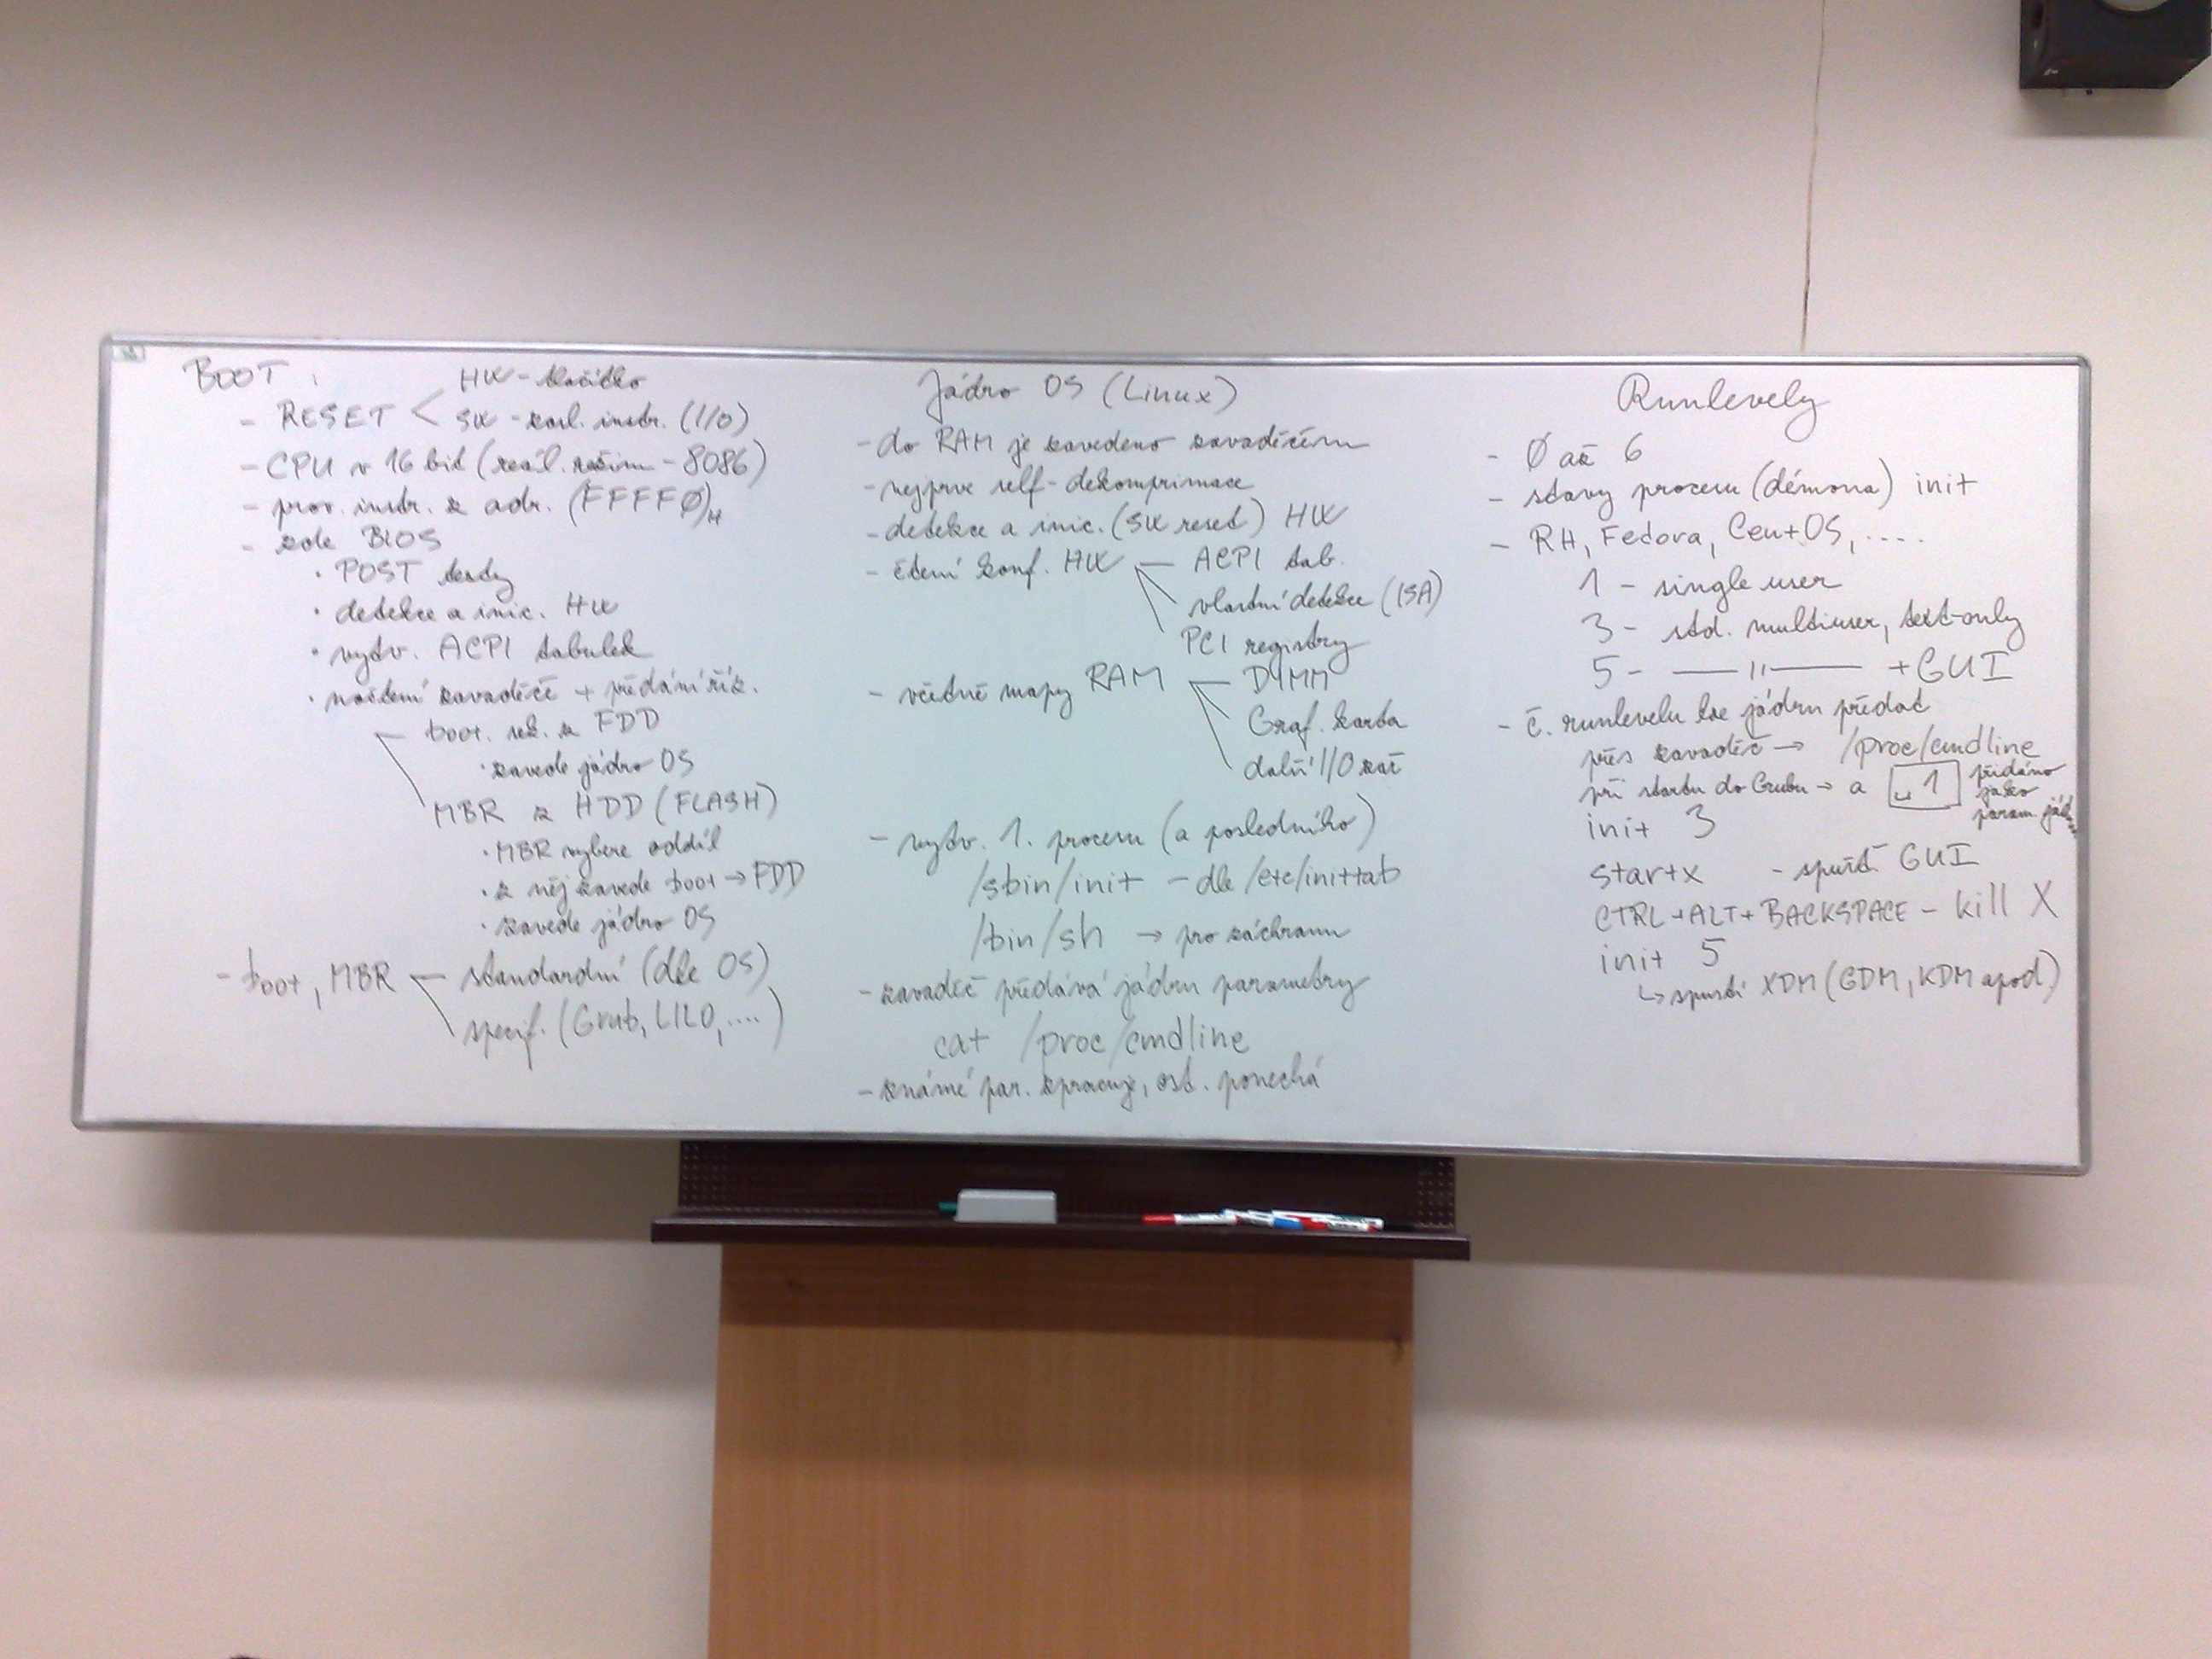 BOOT:
HW - tlačítko
- RESET < SW - zasl. instr. (I/O)
- CPU v 16 bit (reál. režim - 8086)
- prov. instr. z adr. (FFFF0)H
- zde BIOS
· POST testy
· detekce a inic. HW
· vytv. ACPI tabulek
· načtení zavaděče + předání říz.
boot. sek. z FDD
· zavede jádro OS
MBR z HDD (FLASH)
· MBR vybere oddíl
· z něj zavede boot → FDD
· zavede jádro OS
- boot, MBR — standardní (dle OS)
specif. (Grub, LILO, ....)
Jádro OS (Linux)
- do RAM je zavedeno zavaděčem
- nejprve self-dekomprimace
- detekce a inic. (SW reset) HW
- čtení konf. HW — ACPI tab.
vlastní detekce (ISA)
PCI registry
- včetně mapy RAM — DIMM
Graf. karta
další I/O zař
- vytv. 1. procesu (a posledního)
/sbin/init - dle /etc/inittab
/bin/sh → pro záchranu
- zavaděč předává jádru parametry
cat /proc/cmdline
- známé par. zpracuje, ost. ponechá
Runlevely
- 0 až 6
- stavy procesu (démona) init
- RH, Fedora, CentOS, ....
1 - single user
3 - std. multiuser, text-only
5 - —— " —— + GUI
- č. runlevelu lze jádru předat
přes zavaděč → /proc/cmdline
při startu do Grubu → a ␣1 přidáno jako param. jádra
init 3
startx - spustí GUI
CTRL+ALT+BACKSPACE - kill X
init 5
↳ spustí XDM (GDM, KDM apod)